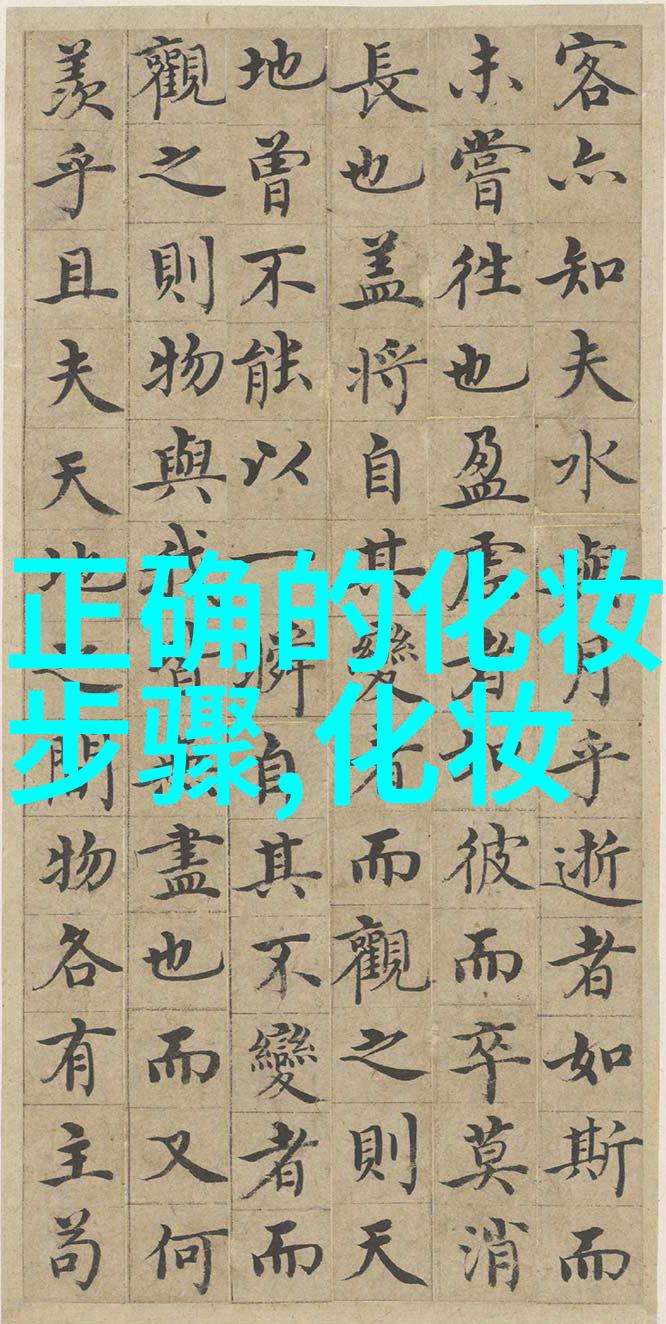 客亦知夫水與月乎逝者如斯而
未嘗往也盈虛者如彼而卒莫消
長也盖將自其變者而觀之則天
地曾不能以一瞬自其不變者而
觀之則物與我皆無盡也而又何
羨乎且夫天地之間物各有主苟
正确的化妆
步骤,化妆